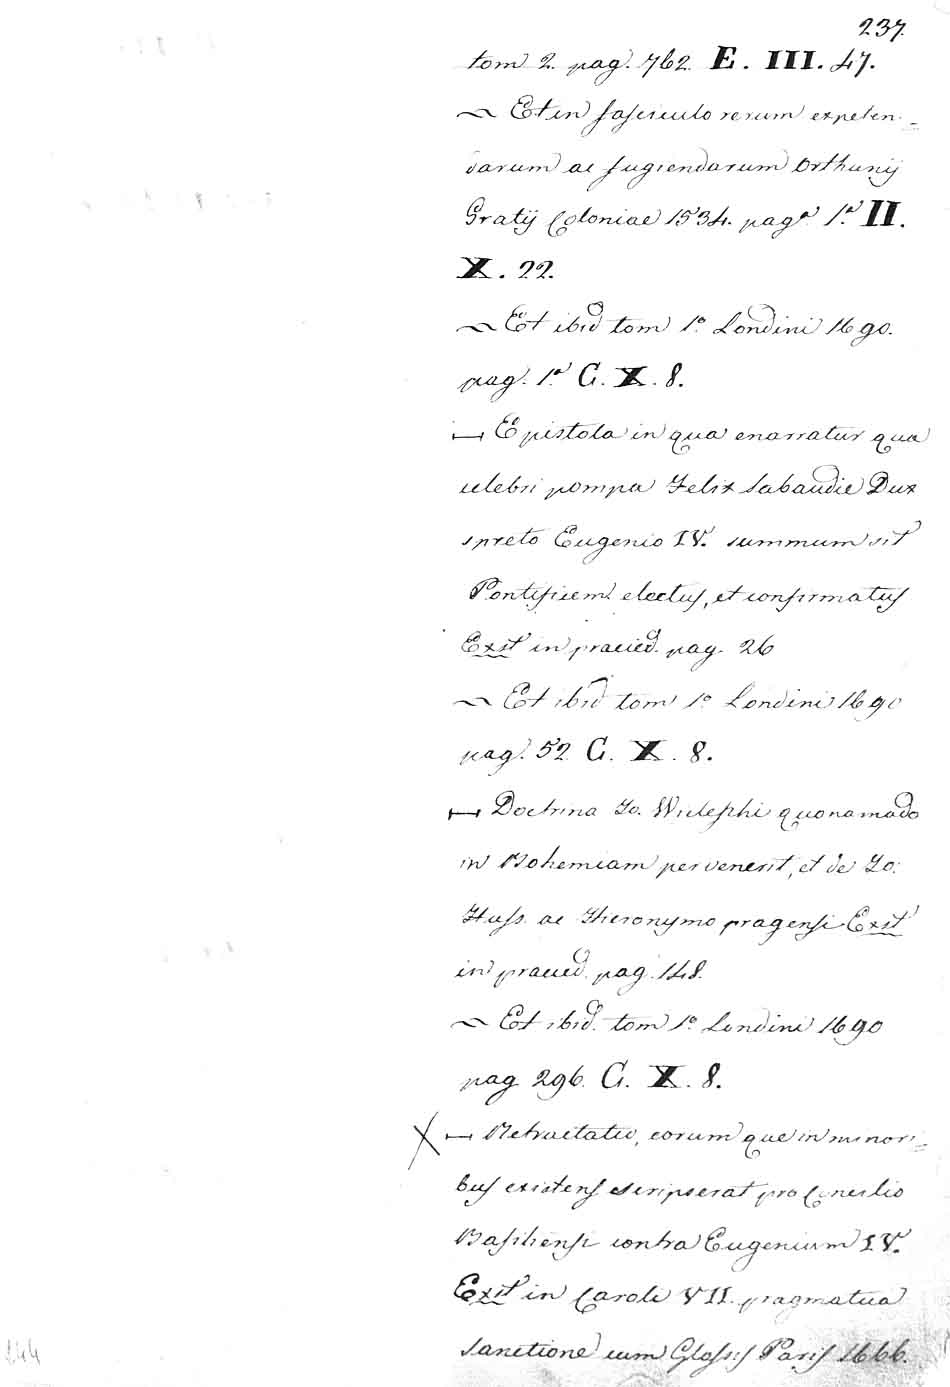 237.
tom 2. pag. 762. E. III. 47.
~ Et in fasciculo rerum expeten=
darum ac fugiendarum Orthunij
Gratij Coloniae 1534. pagª 1ª II.
X. 22.
~ Et ibid. tom 1º Londini 1690.
pag. 1ª G. X. 8.
Epistola in qua enarratur qua
celebri pompa Felix Sabaudie Dux
spreto Eugenio IV. summum sit
Pontificem electus, et confirmatus
Exst in praeced. pag. 26
~ Et ibid tom 1º Londini 1690
pag. 52 G. X. 8.
Doctrina Jo. Wiclephi quonamodo
in Bohemiam pervenerit, et de Jo:
Huss. ac Hieronymo pragensi Exst
in praeced. pag. 148.
~ Et ibid. tom 1º Londini 1690
pag 296. G. X. 8.
X Retractatio, eorum que in minori=
bus existens scripserat pro Concilio
Basiliensi contra Eugenium IV.
Exst in Caroli VII. pragmatica
sanctione cum Glossis Paris 1666.
244